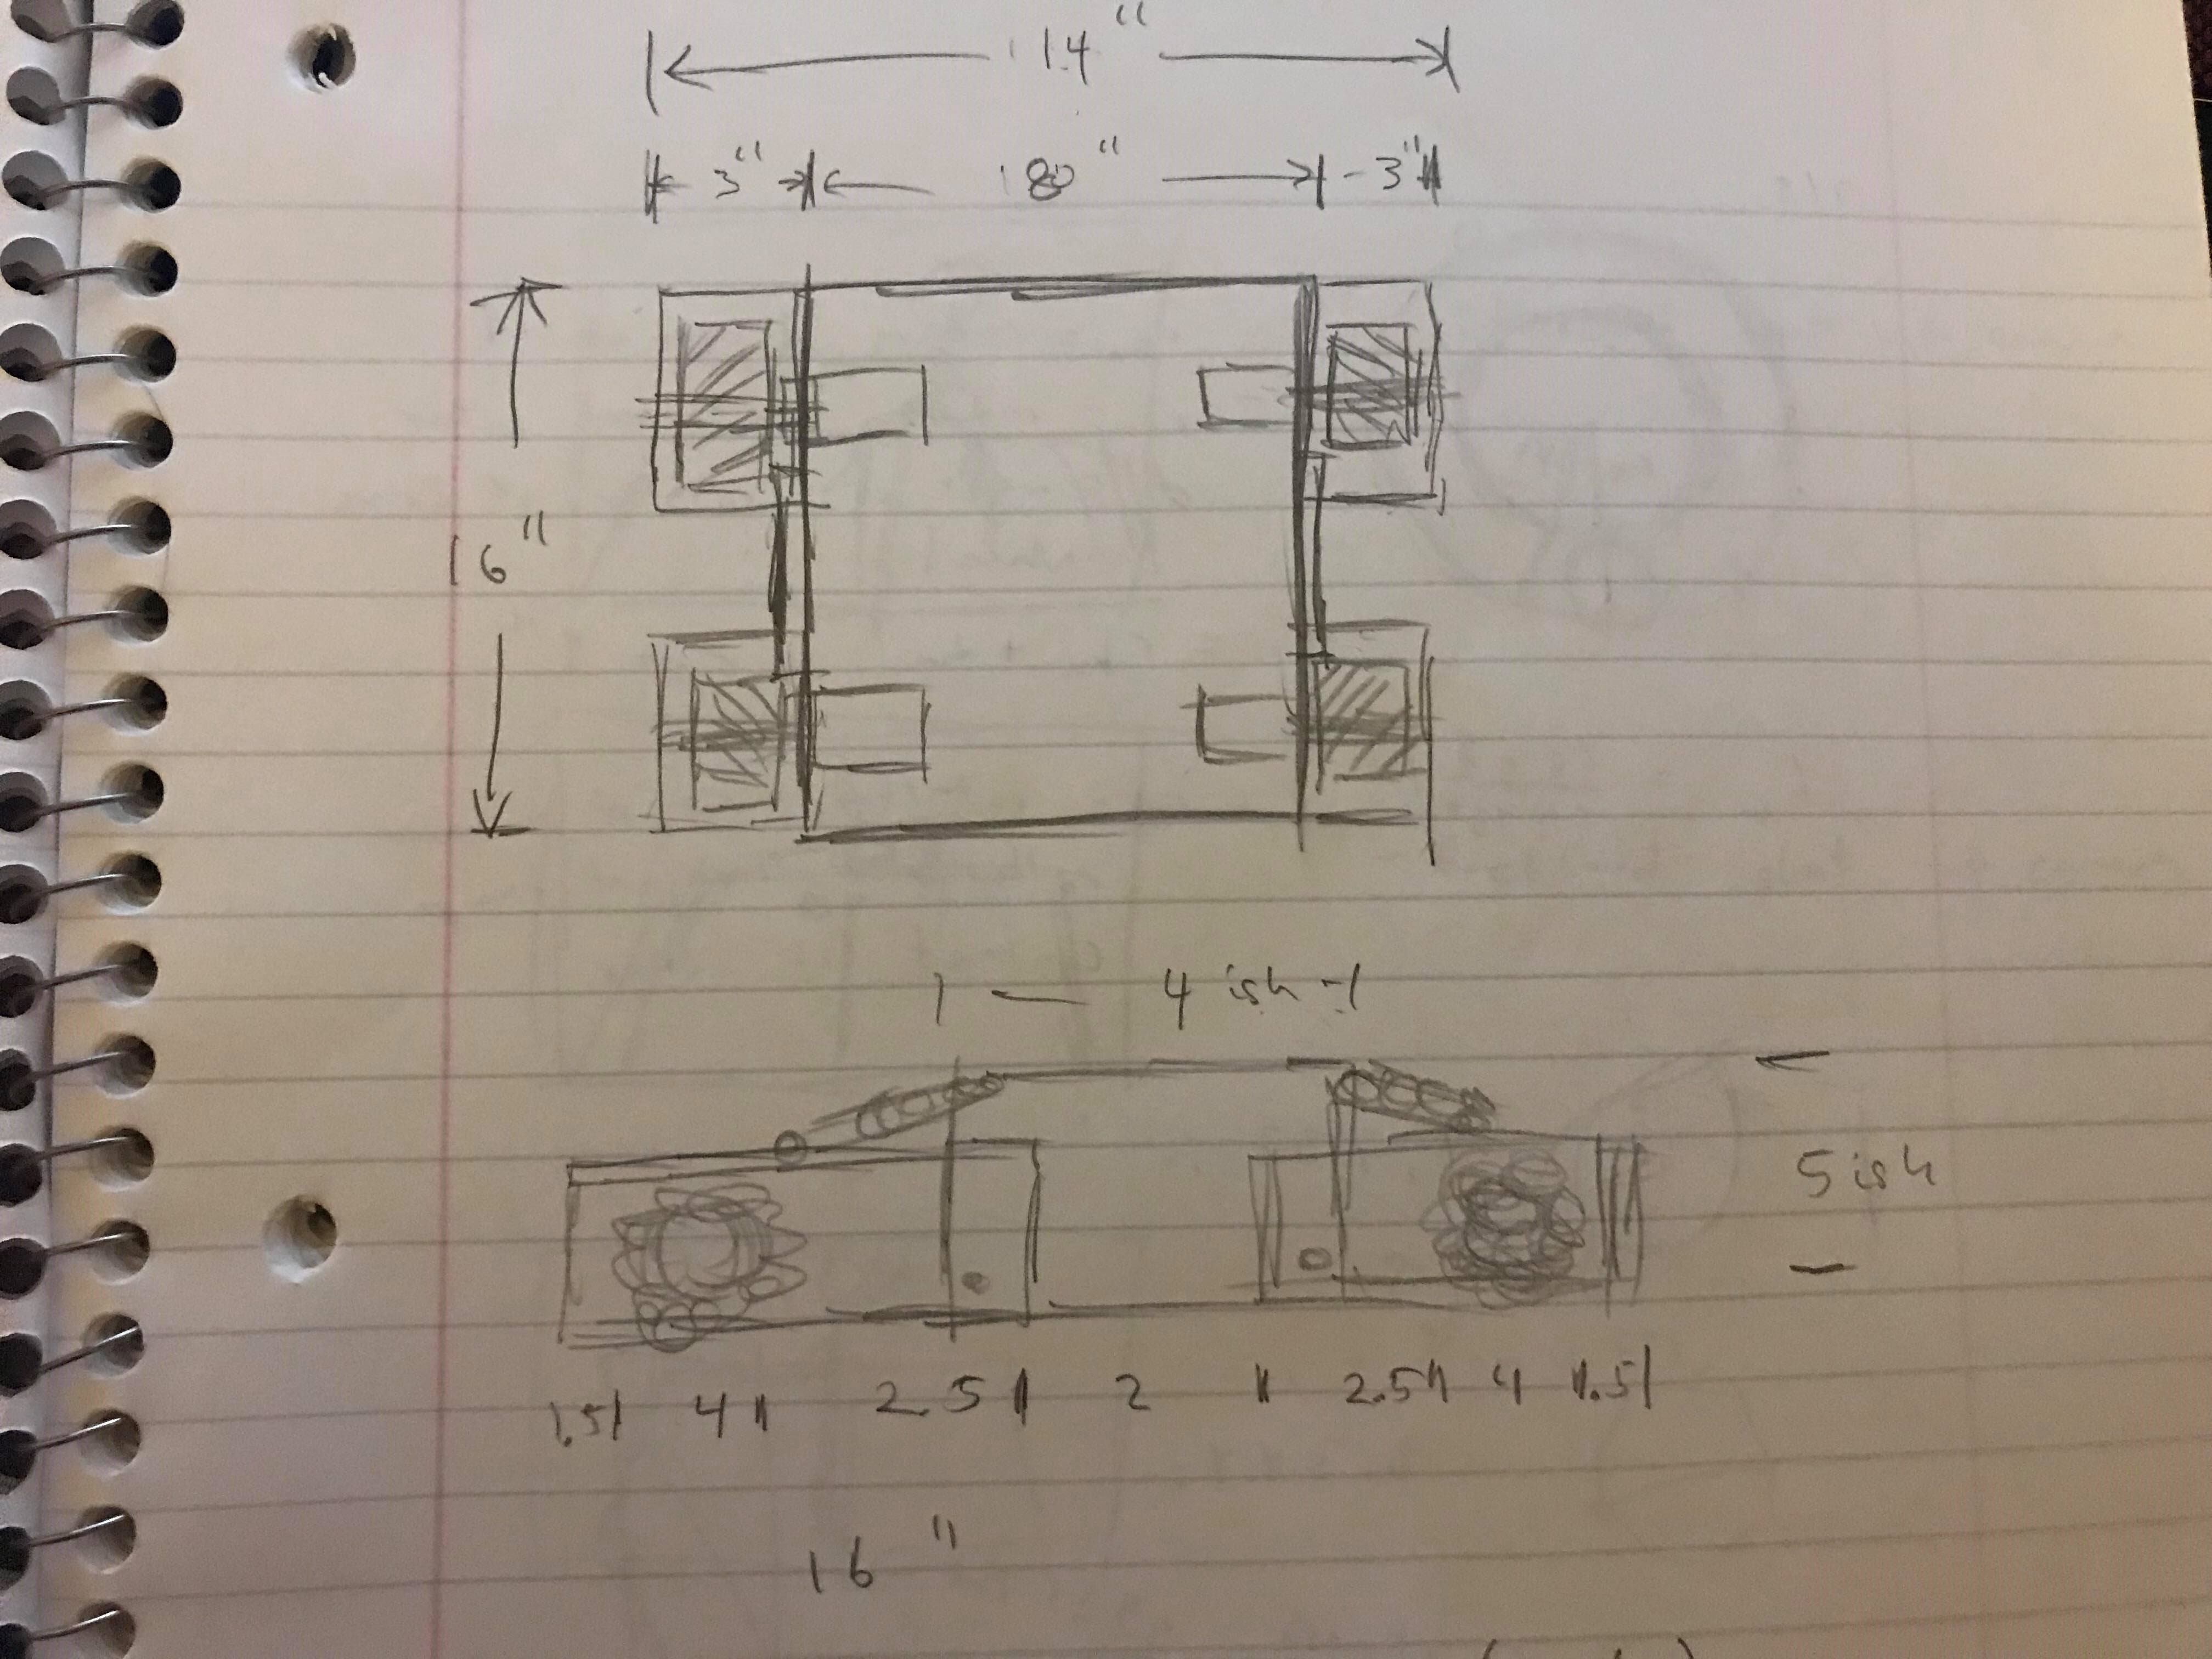 14"
3" 8" 3"
16"
4 ish
5 ish
1.5 4 2.5 2 2.5 4 1.5
16"